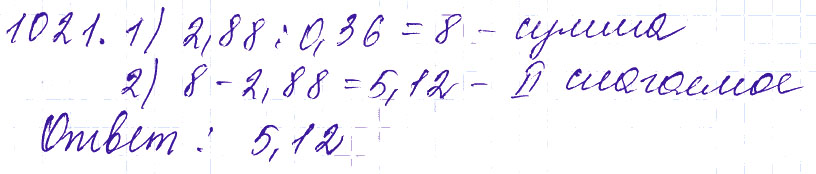 1021. 1) 2,88 : 0,36 = 8 - сумма
2) 8 - 2,88 = 5,12 - II слагаемое
Ответ : 5,12